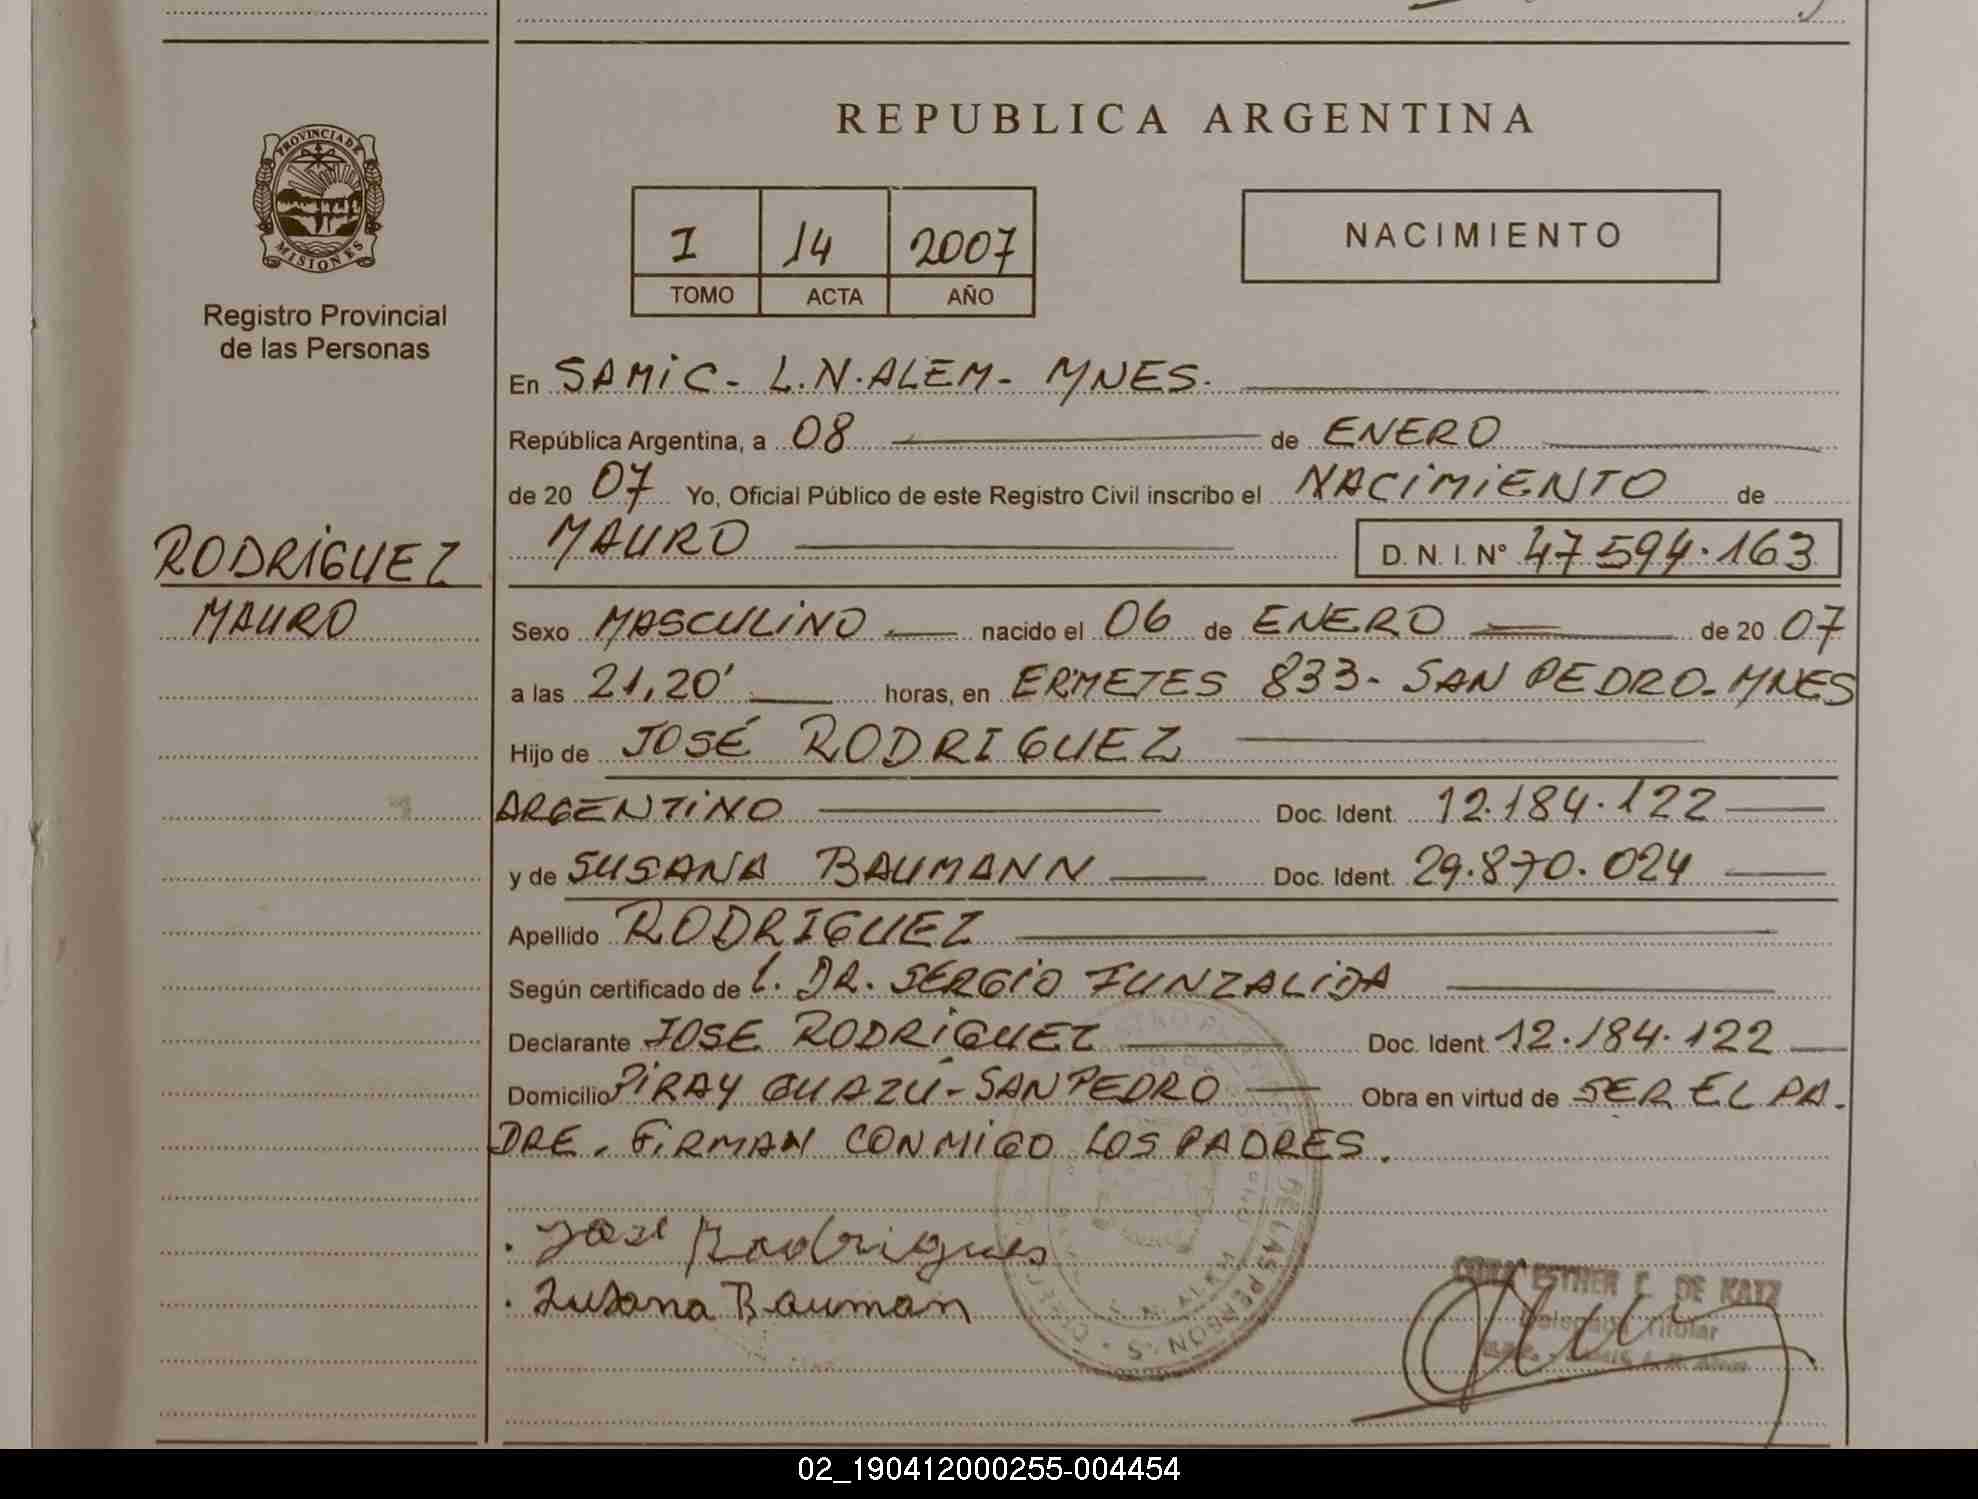 REPUBLICA ARGENTINA
PROVINCIA DE
MISIONES
Registro Provincial
de las Personas
I 14 2007
TOMO ACTA AÑO
NACIMIENTO
En SAMIC - L.N. ALEM - MNES.
República Argentina, a 08 de ENERO
de 20 07 Yo, Oficial Público de este Registro Civil inscribo el NACIMIENTO de
MAURO D. N. I. N° 47.594.163
RODRIGUEZ
MAURO
Sexo MASCULINO nacido el 06 de ENERO de 20 07
a las 21,20' horas, en ERMETES 833 - SAN PEDRO - MNES
Hijo de JOSÉ RODRIGUEZ
ARGENTINO Doc. Ident. 12.184.122
y de SUSANA BAUMANN Doc. Ident. 29.870.024
Apellido RODRIGUEZ
Según certificado de L. DR. SERGIO FUNZALIDA
Declarante JOSE RODRIGUEZ Doc. Ident. 12.184.122
Domicilio PIRAY GUAZÚ - SAN PEDRO Obra en virtud de SER EL PA.
DRE. FIRMAN CONMIGO LOS PADRES.
José Rodrigues
Susana Bauman
DE LAS PERSONAS
L. N. ALEM
ESTHER C. DE KATZ
Delegada Titular
02_190412000255-004454